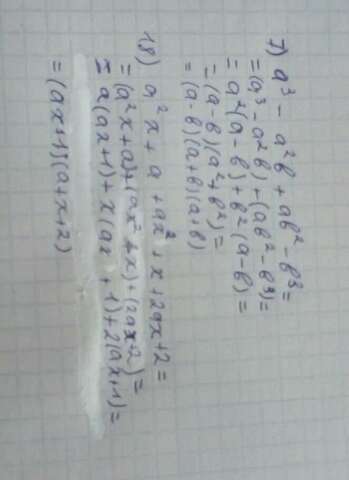 7) a³ - a²b + ab² - b³ =
= (a³ - a²b) + (ab² - b³) =
= a²(a - b) + b²(a - b) =
= (a - b)(a² + b²) =
= (a - b)(a + b)(a + b)
18) a²x + a + ax² + x + 2ax + 2 =
= (a²x + a) + (ax² + x) + (2ax + 2) =
= a(ax + 1) + x(ax + 1) + 2(ax + 1) =
= (ax + 1)(a + x + 2)